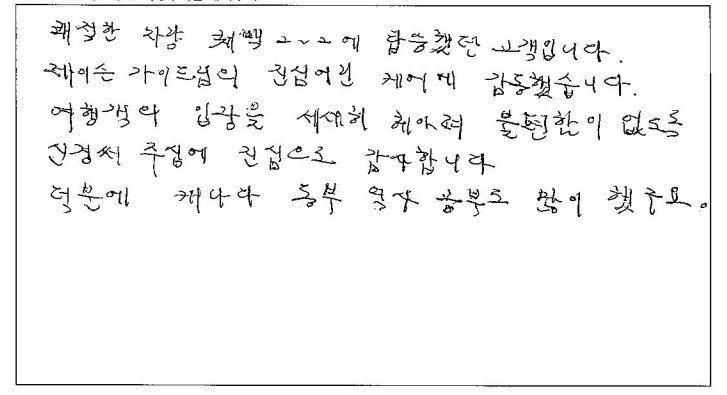 쾌적한 차량 2~2에 탑승했던 고객입니다.
제이슨 가이드님의 진심어린 케어에 감동했습니다.
여행객의 입장을 세세히 헤아려 불편한이 없도록
신경써 주심에 진심으로 감사합니다
덕분에 캐나다 동부 역사 공부도 많이 했구요.